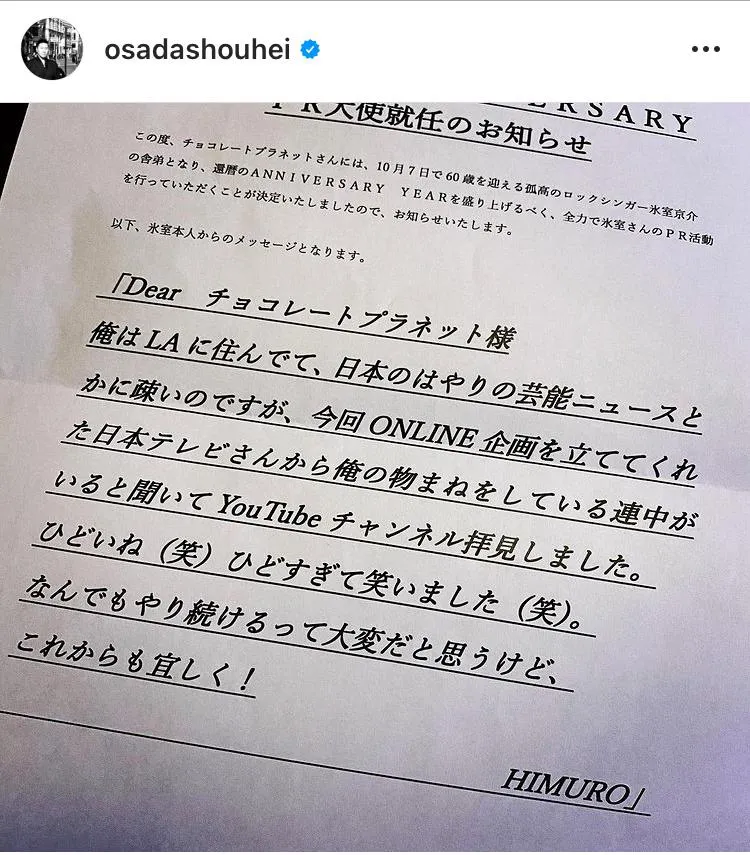 osadashouhei
ERSARY
PR大使就任のお知らせ
この度、チョコレートプラネットさんには、10月7日で60歳を迎える孤高のロックシンガー氷室京介
の舎弟となり、還暦のANNIVERSARY YEARを盛り上げるべく、全力で氷室さんのPR活動
を行っていただくことが決定いたしましたので、お知らせいたします。
以下、氷室本人からのメッセージとなります。
「Dear チョコレートプラネット様
俺はLAに住んでて、日本のはやりの芸能ニュースと
かに疎いのですが、今回ONLINE企画を立ててくれ
た日本テレビさんから俺の物まねをしている連中が
いると聞いてYouTubeチャンネル拝見しました。
ひどいね（笑）ひどすぎて笑いました（笑）。
なんでもやり続けるって大変だと思うけど、
これからも宜しく！
HIMURO」